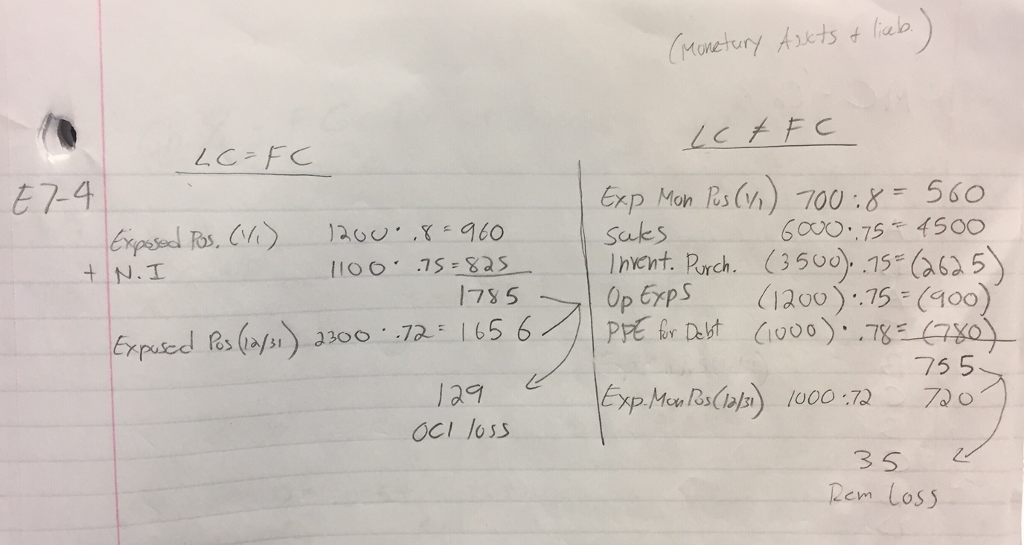 (Monetary Assets & liab.)
E7-4
LC = FC
Exposed Pos. (1/1) 1200 · .8 = 960
+ N.I 1100 · .75 = 825
1785
Exposed Pos (12/31) 2300 · .72 = 1656
129
OCI loss
LC ≠ FC
Exp Mon Pos (1/1) 700 · .8 = 560
Sales 6000 · .75 = 4500
Invent. Purch. (3500) · .75 = (2625)
Op Exps (1200) · .75 = (900)
PPE for Debt (1000) · .78 = (780)
755
Exp. Mon Pos (12/31) 1000 · .72 720
35
Rem Loss